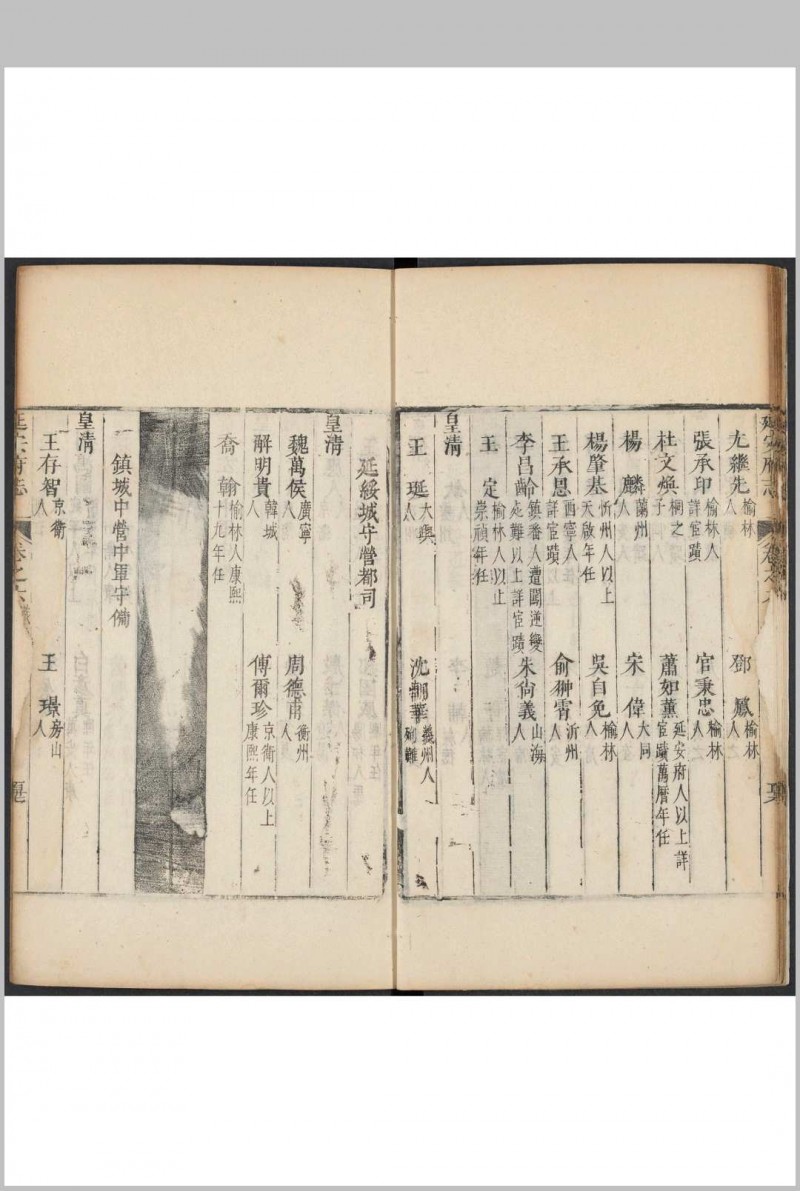 延安府志 卷之六
尤繼先 榆林人 鄧鳳 榆林人
張承印 榆林人詳宦蹟 官秉忠 榆林人
杜文煥 桐之子 蕭如薰 延安府人以上詳宦蹟萬曆年任
楊麟 蘭州人 宋偉 大同人
楊肇基 忻州人以上天啟年任 吳自免 榆林人
王承恩 西寧人詳宦蹟 俞翀霄 沂州人
李昌齡 鎮番人遭闖逆變死難以上詳宦蹟 朱尚義 山海人
王定 榆林人以上崇禎年任
皇清
王珽 大興人 沈朝華 義州人
延綏城守營都司
皇清
魏萬侯 廣寧人 周德甫 衢州人
解明貴 韓城人 傅爾珍 京衛人以上康熙年任
喬翰 榆林人康熙十九年任
鎮城中營中軍守備
皇清
王存智 京衛人 王璟 房山人
延安府志 卷之六